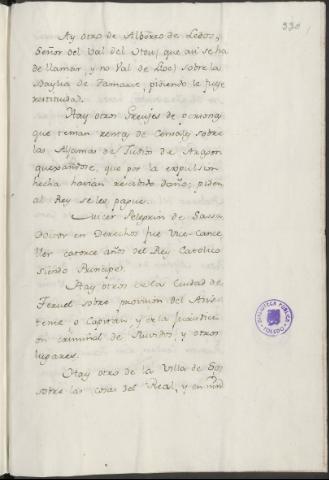 330
Ay otro de Alberto de Ledos,
Señor del Val del Uso, que asi se ha
de llamar y no Val de Lios, sobre la
Baylia de Tamarit, pidiendo le fuese
restituida.
Hay otros Greujes de personas
que tenian rentas de Censales sobre
las Aljamas de Judios de Aragon
quexandose, que por la expulsion
hecha havian recibido daño; piden
al Rey se les pague.
Micer Pelegrin de Sassa
Doctor en Derechos fue Vice-Cance
ller catorce años del Rey Catolico
siendo Principe.
Hay otros de la Ciudad de
Teruel sobre provision del Asis-
tente o Capitan y de la Jurisdicci
on criminal de Ruidos, y otros
lugares.
Hay otro de la Villa de
sobre las cosas del Real, y en
BIBLIOTECA PUBLICA
TOLEDO